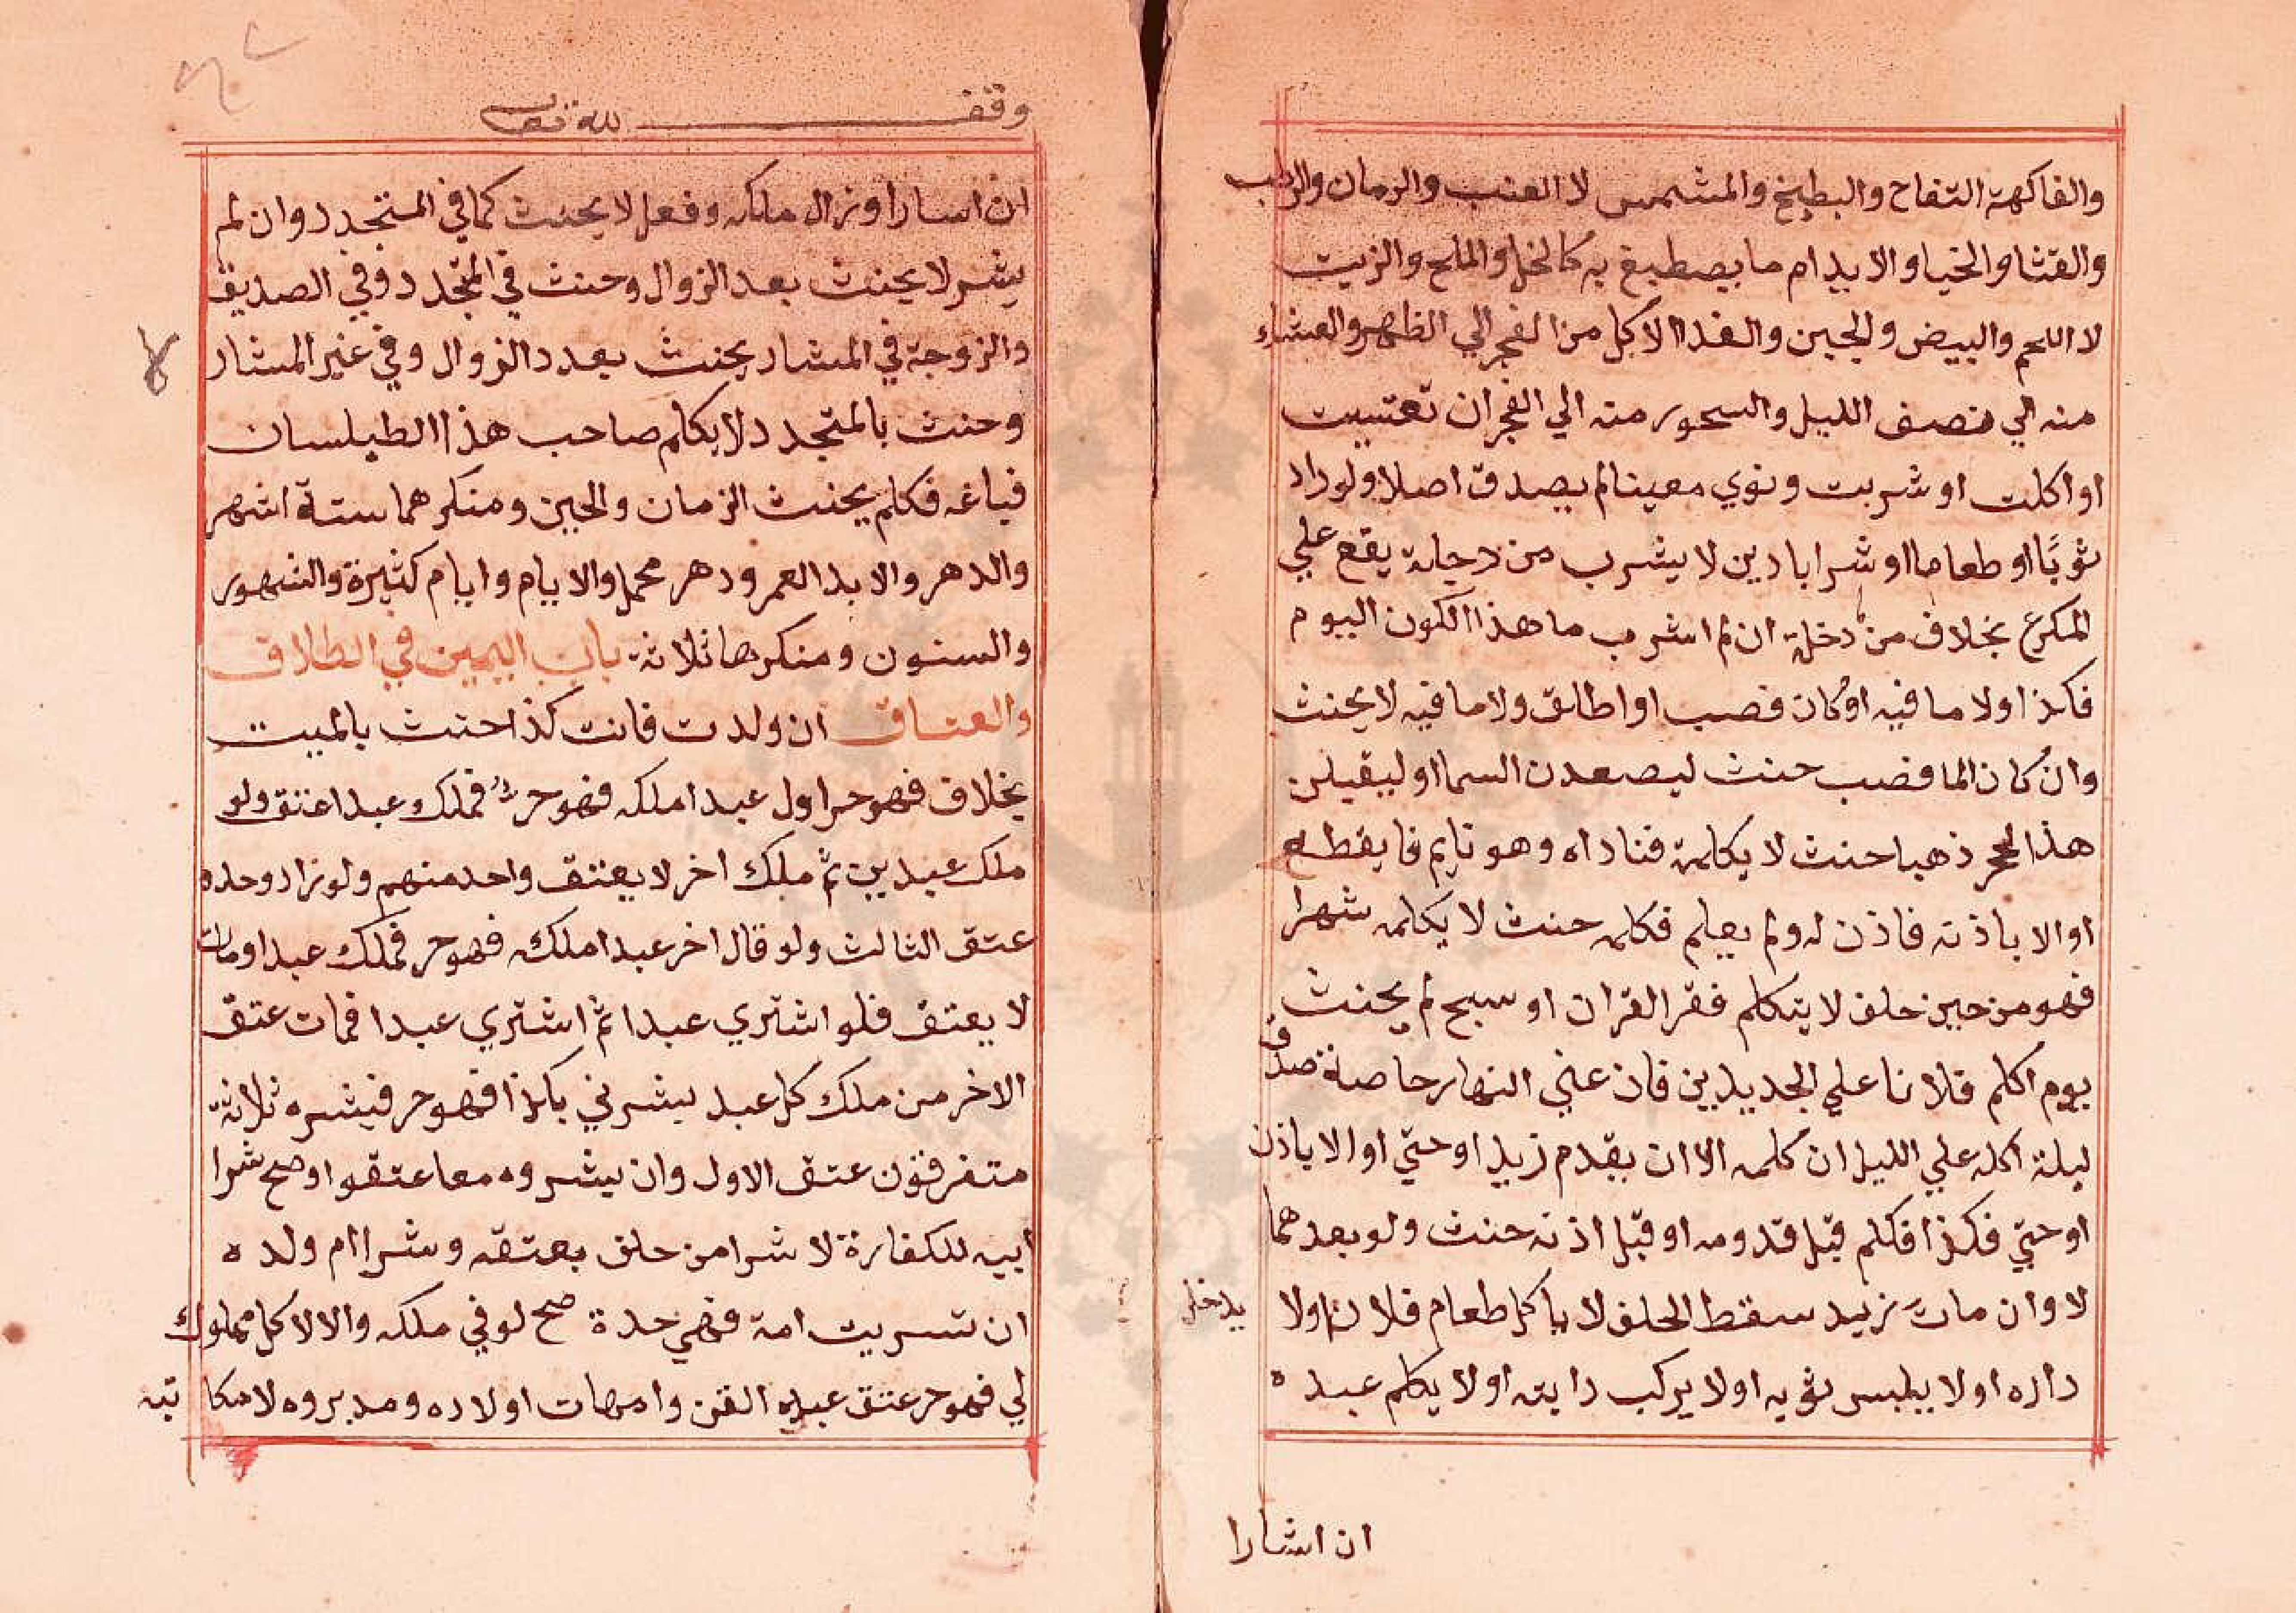 والفاكهة التفاح والبطيخ والمشمس لا العنب والرمان والرطب
والقثا والخيا والا يدام ما يصطبغ به كالخل والملح والزيت
لا اللحم والبيض والجبن والغدا الاكل من الفجر الي الظهر والعشاء
منه الي نصف الليل والسحور منه الي الفجر ان تعتبيت
او اكلت او شربت ونوي معينا لم يصدق اصلا ولو زاد
ثوبًا او طعاما او شرابا دين لا يشرب من دجلة يقع علي
الكرع بخلاف من دخلة ان لم اشرب ما هذا الكون اليوم
فكذا ولا ما فيه او كان فصب او اطلق ولا ما فيه لا يحنث
وان كان الما فصب حنث ليصعدن السما او ليقبلن
هذا الحجر ذهبا حنث لا يكلمة فناداه وهو نايم فايقطع
او الا باذنه فاذن له ولم يعلم فكلمه حنث لا يكلمه شهرا
فهو من حين حلف لا يتكلم فقرا القران او سبح لم يحنث
يوم اكلم فلانا علي الجديدين فان عني النهار حاصة صدق
ليلة اكله علي الليل ان كلمه الا ان يقدم زيد او حتي او الا باذن
او حتي فكذا فكلم قبل قدومه او قبل اذنه حنث ولو بعدهما
لا وان مات زيد سقط الحلف لا ياكل طعام فلان او لا يدخل
داره او لا يلبس ثوبه او لا يركب دابته او لا يكلم عبده
ان اشارا
وقف لله تعالى
ان اسارا وزال ملكه وفعل لا يحنث كما في المتجدد وان لم
يشر لا يحنث بعد الزوال وحنث في المتجدد وفي الصديق
والزوجة في المشار يحنث بعدد الزوال وفي غير المشار
وحنث بالمتجدد لا يكلم صاحب هذا الطيلسان
فباعه فكلم يحنث الزمان والحين ومنكرهما ستة اشهر
والدهر والابد العمر ودهر محمل والايام وايام كثيرة والشهور
والسنون ومنكرها ثلاثة باب اليمين في الطلاق
والعتاق ان ولدت فانت كذا حنث بالميت
بخلاف فهو حر اول عبد املكه فهو حر فملك عبدا عتق ولو
ملك عبدين ثم ملك اخر لا يعتق واحد منهم ولو زاد وحده
عتق الثالث ولو قال اخر عبد املكه فهو حر فملك عبدا ومات
لا يعتق فلو اشتري عبدا ثم اشتري عبدا فمات عتق
الاخر من ملك كل عبد بشرني بكذا فهو حر فبشره ثلاثة
متفرقون عتق الاول وان بشروه معا عتقوا وصح شرا
ابيه للكفارة لا شرا من حلف بعتقه وشرا ام ولده
ان تسريت امة فهي حدة صح لو في ملكه والا لا كل مملوك
لي فهو حر عتق عبيده القن وامهات اولاده ومدبروه لا مكا تبه